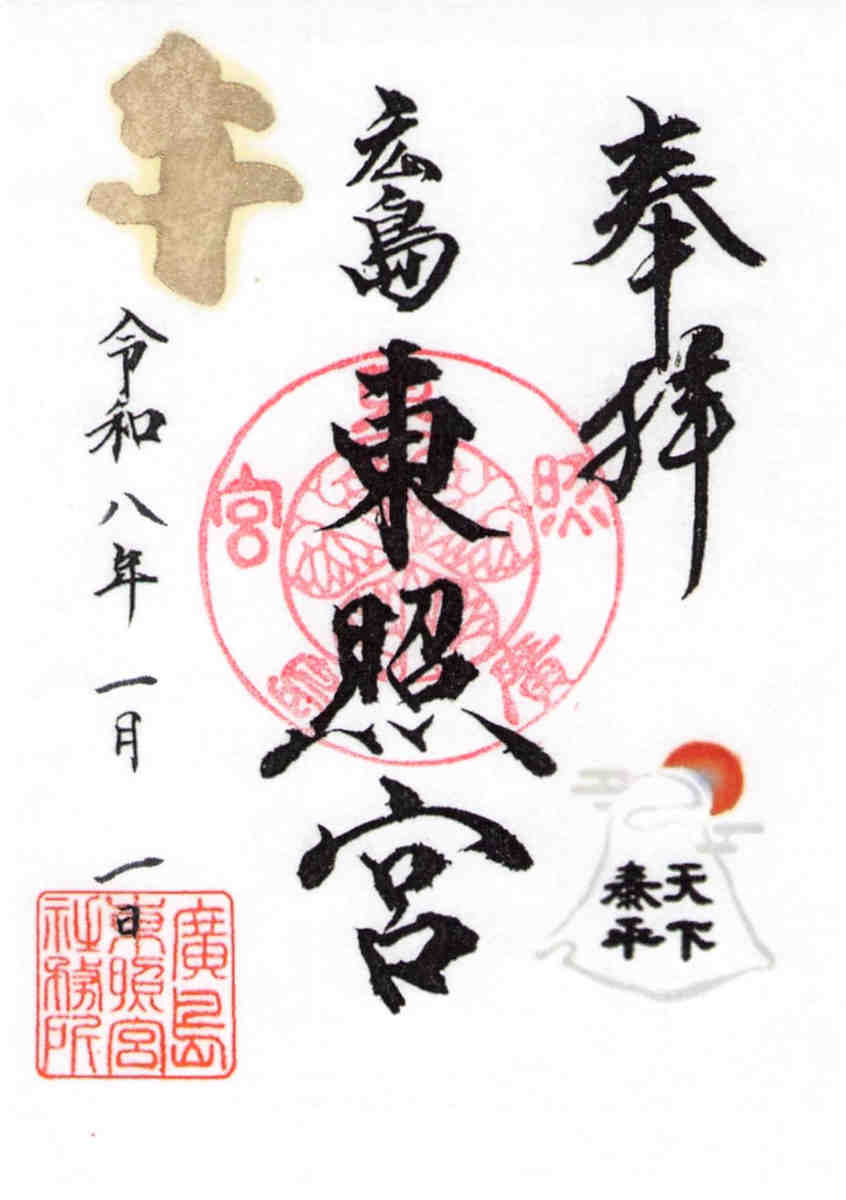 奉拝
天下
泰平
広島東照宮
廣島東照宮
令和八年一月一日
廣島
東照宮
社務所